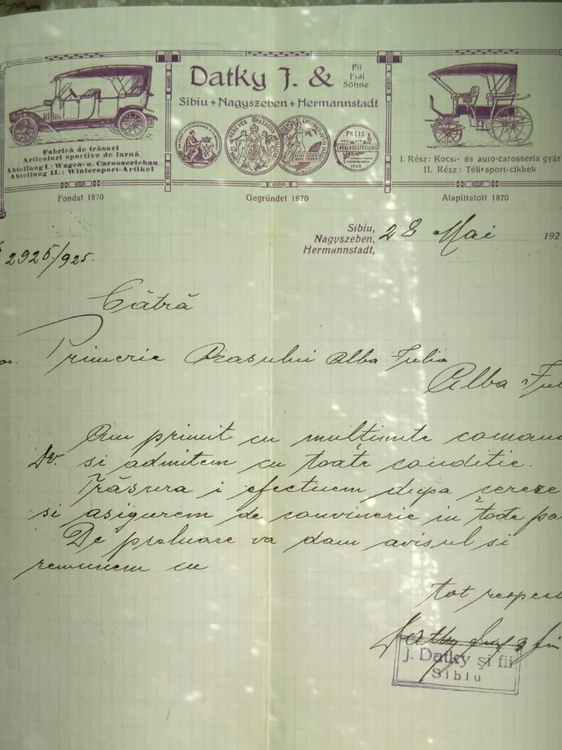 Datky J. &
Fii
Fiai
Söhne
Sibiu + Nagyszeben + Hermannstadt
Fabrică de trăsuri
Articoluri sportive de iarnă
Abteilung I: Wagen- u. Carosseriebau
Abteilung II.: Wintersport-Artikel
PREIS
I. Rész: Kocsi- és auto-carosseria gyár
II. Rész: Téli-sport-cikkek
Fondat 1870
Gegründet 1870
Alapittatott 1870
Sibiu,
Nagyszeben,
Hermannstadt,
28 Mai 192
2925/925
Cătră
Primerie Orasului Alba Julia
Alba Jul
Am primit cu mulțimite comand
Dv. si admitem cu toate conditie.
Trăsura i efectuem dupa cereze
si asigurem de convinerie in tote pa
De preluare va dam avisul si
remunem cu
tot respect
J. Datky și fii
Sibiu